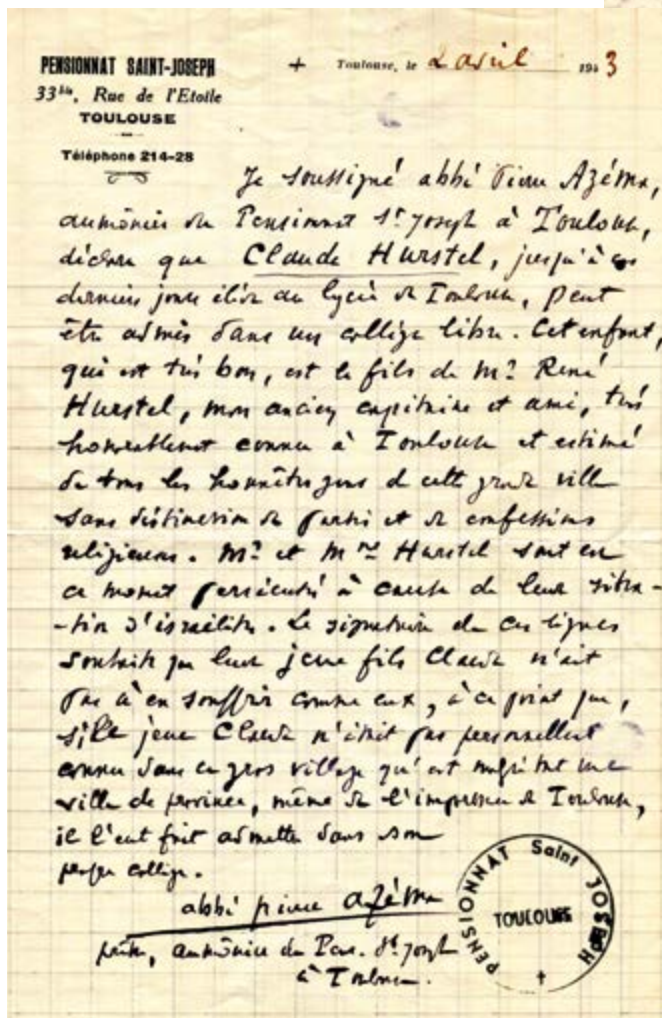 PENSIONNAT SAINT-JOSEPH
33bis, Rue de l'Etoile
TOULOUSE
Téléphone 214-28
+ Toulouse, le 2 avril 1943
Je soussigné abbé Pierre Azéma,
aumônier du Pensionnat St Joseph à Toulouse,
déclare que Claude Hurstel, jusqu'à ces
derniers jours élève au lycée de Toulouse, peut
être admis dans un collège libre. Cet enfant,
qui est très bon, est le fils de Mr René
Hurstel, mon ancien capitaine et ami, très
honorablement connu à Toulouse et estimé
de tous les honnêtes gens de cette grande ville
sans distinction de partis et de confessions
religieuses. Mr et Mme Hurstel sont en
ce moment persécutés à cause de leur situa-
-tion d'israélites. Le signataire de ces lignes
souhaite que leur jeune fils Claude n'ait
pas à en souffrir comme eux, à ce point que,
si le jeune Claude n'était pas personnellement
connu dans ce gros village qu'est malgré tout une
ville de province, même de l'importance de Toulouse,
il l'eut fait admettre dans son
propre collège.
abbé pierre azéma
prêtre, aumônier du Pens. St Joseph
à Toulouse.
PENSIONNAT Saint JOSEPH
TOULOUSE